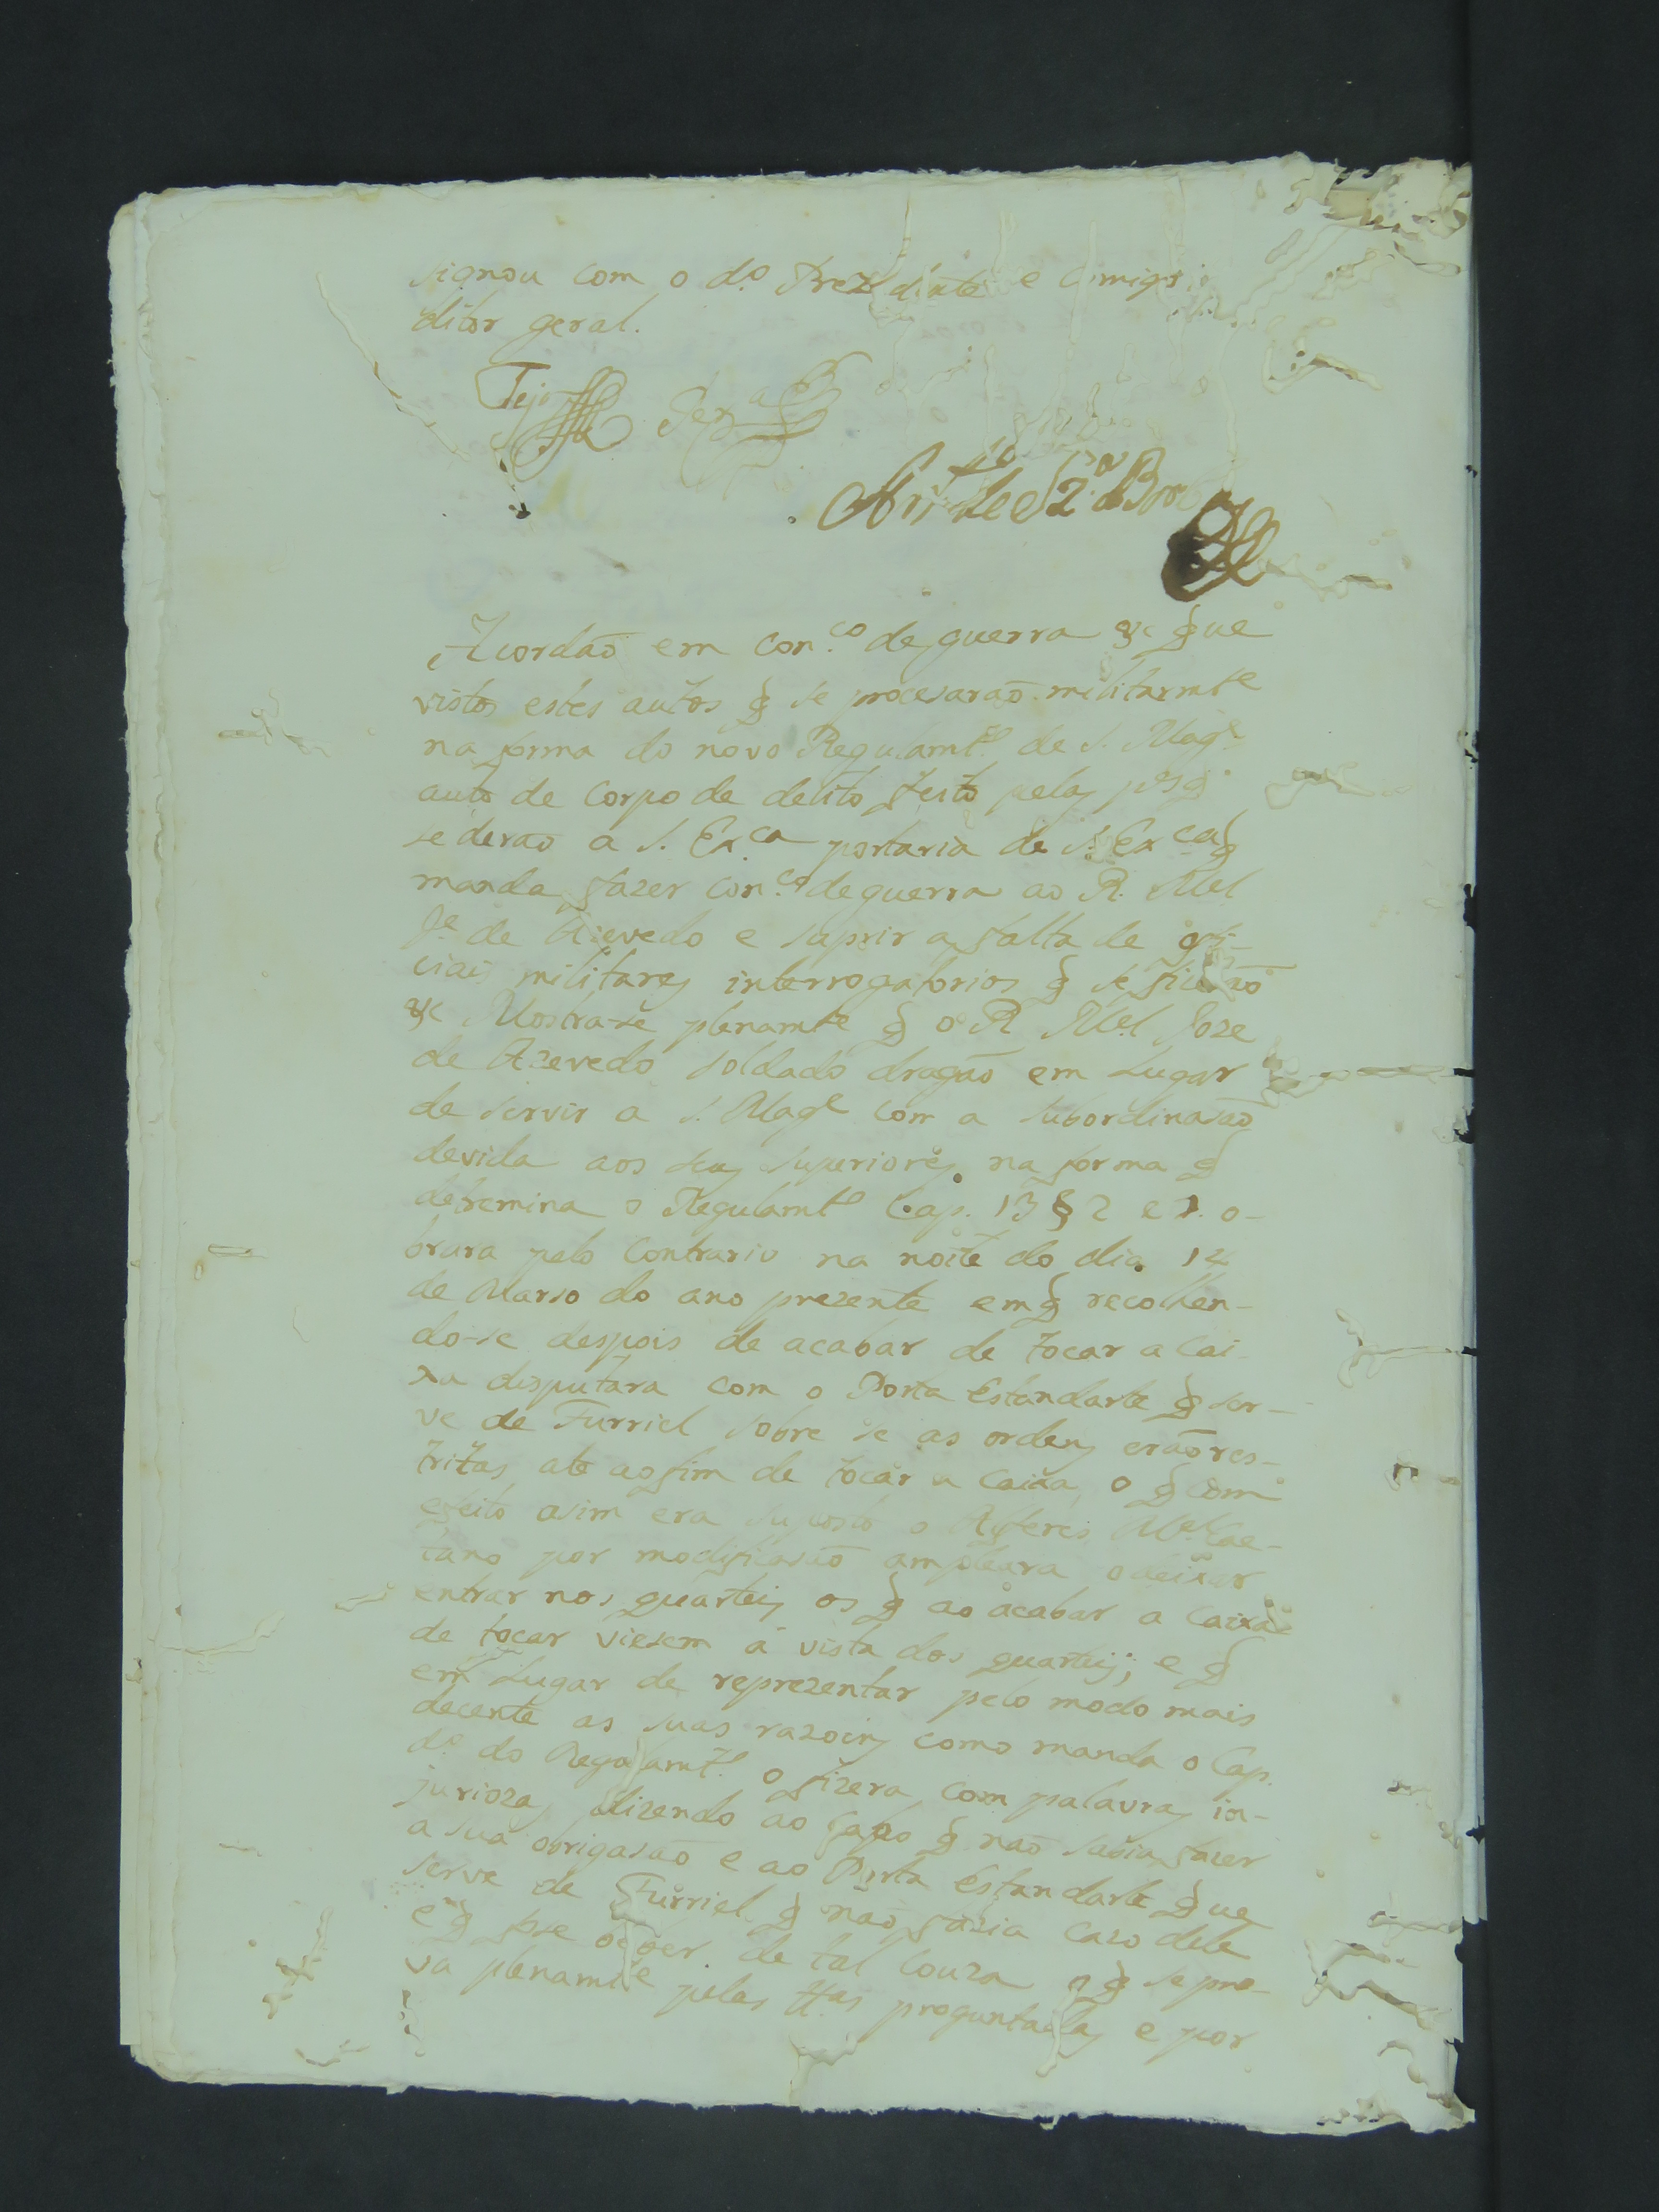 signou com o d.º Prezidente e comigo
ditor geral.
Tejo
Acordaõ em Con.co de guerra &c que
vistos estes autos q̃ se procesaraõ militarmte
na forma do novo Regulamto de S. Mage
auto de Corpo de delito feito pelas
se deraõ a S. Ex.ca portaria de S. Exca q̃
manda fazer Con.co de guerra ao R. Mel
Je de Azevedo e suprir a falta de ofi-
ciais militares interrogatorios q̃ se fizeraõ
&c Mostra-se plenamte q̃ o R Mel Joze
de Azevedo soldado dragaõ em Lugar
de servir a S. Mage com a subordinasaõ
devida aos seus superiores na forma q̃
detremina o Regulamto Cap. 13 § 2 e 1. o-
brara pelo Contrario na noite do dia 14
de Marso do ano prezente em q̃ recolhen-
do-se despois de acabar de tocar a Cai-
xa disputara com o Porta Estandarte q̃ ser-
ve de Furriel sobre se as ordens eraõ res-
tritas ate ao fim de tocar a Caixa, o q̃ com
efeito asim era suposto o Alferes Mel Cae-
tano por modificasaõ ampleara o deixar
entrar nos quarteis os q̃ ao acabar a Caixa
de tocar viesem á vista dos quarteis; e q̃
em Lugar de reprezentar pelo modo mais
decente as suas razoins como manda o Cap.
do do Regulamto o fizera com palavras in-
juriozas dizendo ao Cabo q̃ naõ sabia fazer
a sua obrigasaõ e ao Porta Estandarte que
serve de Furriel q̃ naõ fazia cazo dele
e q̃ de tal Couza o q̃ se pro-
va plenamte pelas ttas proguntadas e por